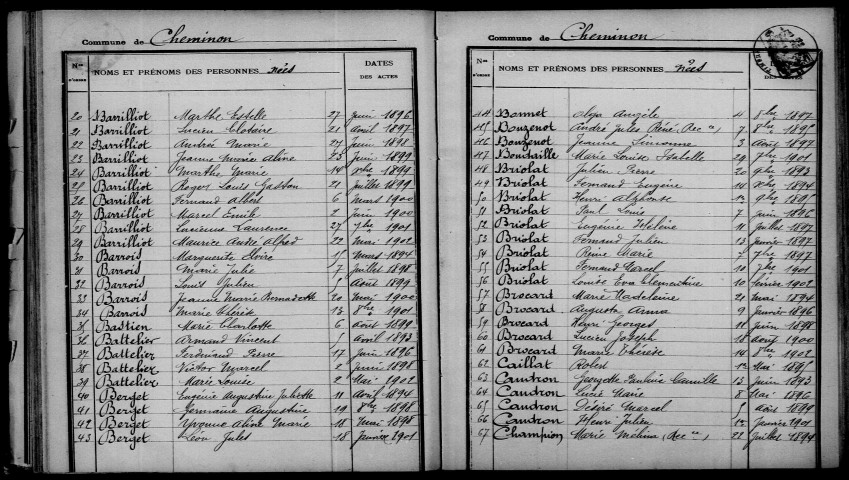 Commune de Cheminon
Nos D'ORDRE NOMS ET PRÉNOMS DES PERSONNES Nées DATES DES ACTES
20 Barrilliot Marthe Estelle 27 juin 1896
21 Barrilliot Lucien Clotaire 21 avril 1897
22 Barrilliot Andrée Marie 27 juin 1898
23 Barrilliot Jeanne Marie Aline 23 juin 1899
24 Barrilliot Marthe Marie 14 1899
25 Barrilliot Roger Louis Gaston 21 juillet 1899
26 Barrilliot Fernand Albert 6 mars 1900
27 Barrilliot Marcel Emile 2 juin 1900
28 Barrilliot Lucienne Laurence 27 1901
29 Barrilliot Maurice André Alfred 22 mai 1902
30 Barrois Marguerite 15 mars 1894
31 Barrois Marie Julie 7 juillet 1898
32 Barrois Louis Julien 5 août 1899
33 Barrois Jeanne Marie Bernadette 20 mai 1900
34 Barrois Marie Thérèse 13 8bre 1901
35 Bastien Marie Charlotte 6 août 1899
36 Battelier Armand Vincent 5 avril 1893
37 Battelier Ferdinand Pierre 17 juin 1896
38 Battelier Victor Marcel 2 juin 1898
39 Battelier Marie Louise 2 Mai 1902
40 Berget Eugénie Augustine Juliette 11 avril 1894
41 Berget Germaine Augustine 19 8bre 1898
42 Berget Yvonne Aline Marie 18 mai 1898
43 Berget Léon Jules 18 janvier 1901
Commune de Cheminon
Nos D'ORDRE NOMS ET PRÉNOMS DES PERSONNES Nées
44 Bonnet Olga Angèle 4 8bre 1897
45 Bouzenot André Jules René (Rec on) 7 8bre 1895
46 Bouzenot Jeanne Simonne 3 août 1897
47 Marie Louise Isabelle 29 7bre 1901
48 Briolat Julien Pierre 20 9bre 1893
49 Briolat Fernand Eugène 14 1894
50 Briolat Henri Alphonse 12 9bre 1895
51 Briolat Paul Louis 7 juin 1896
52 Briolat Eugénie Hélène 11 juillet 1897
53 Briolat Fernand Julien 13 janvier 1897
54 Briolat Reine Marie 7 7bre 1897
55 Briolat Fernand Marcel 10 7bre 1901
56 Briolat Louise Eva Clementine 10 février 1902
57 Brocard Marie Madeleine 21 mai 1894
58 Brocard Augusta Anna 9 janvier 1896
59 Brocard Henri Georges 11 juin 1898
60 Brocard Lucien Joseph 18 avril 1900
61 Brocard Marie Thérèse 14 8bre 1902
62 Caillat Robert 12 Mai 1895
63 Caudron Georgette Pauline Camille 13 juin 1893
64 Caudron Lucie Marie 8 Mai 1896
65 Caudron Désiré Marcel 5 août 1899
66 Caudron Henri Julien 12 janvier 1901
67 Champion Marie Mélina (Rec on) 22 juillet 1894